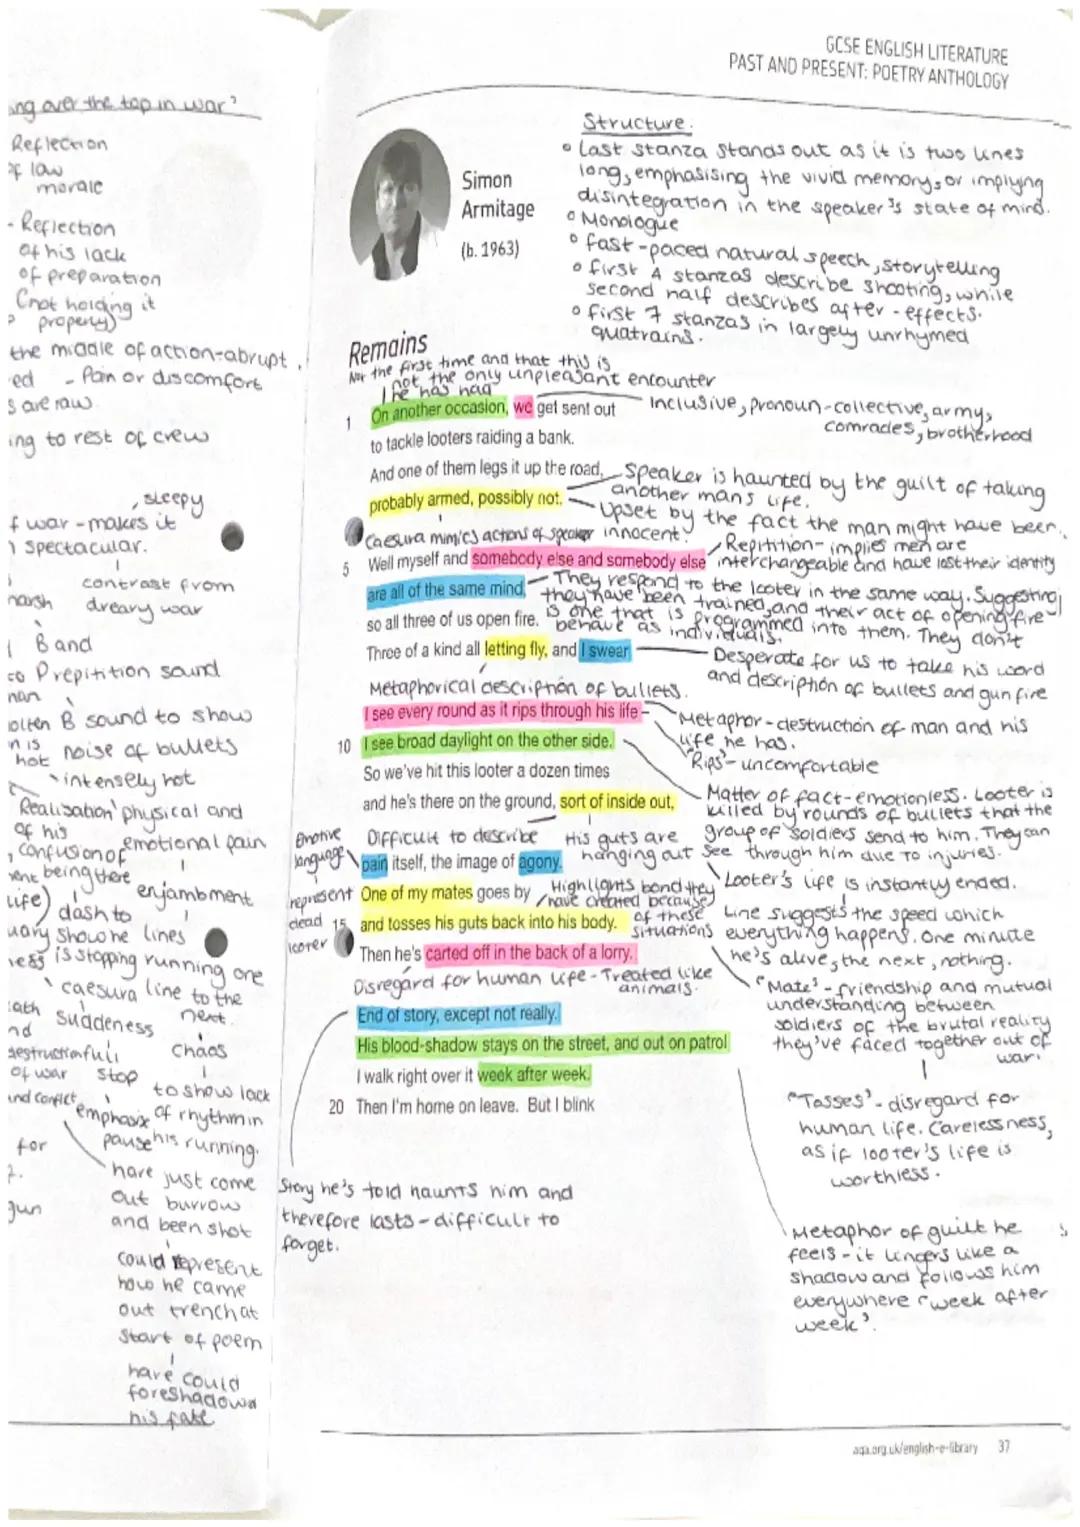 GCSE ENGLISH LITERATURE
PAST AND PRESENT: POETRY ANTHOLOGY
ing over the top in war'
Reflection
of law
morale
- Reflection
of his lack
of preparation
(not holding it
properly)
the middle of action-abrupt
ed - Pain or discomfort
s are raw
ing to rest of crew
, sleepy
f war - makes it
spectacular.
contrast from
harsh dreary war
B and
to Prepitition sound
man
olten B sound to show
n is noise of bullets
hot intensely hot
Realisation physical and
of his emotional pain
, confusion of
being there enjambment
life) dash to
uary show he lines
ness is stopping running one
caesura line to the
next.
eath suddeness
nd
destruction full chaos
of war stop
and conflict to show lack
emphasix of rhythm in
for pause his running.
2.
gun
hare just come
out burrow
and been shot
could represent
how he came
out trench at
start of poem
hare could
foreshadowd
his fate
Simon
Armitage
(b. 1963)
Structure.
• Last stanza stands out as it is two lines
long, emphasising the vivid memory, or implying
disintegration in the speaker's state of mind.
• Monologue
• fast-paced natural speech, storytelling
• first 4 stanzas describe shooting, while
second half describes after-effects.
• first 7 stanzas in largely unrhymed
quatrains.
Remains
Not the first time and that this is
not the only unpleasant encounter
he has had
1 On another occasion, we get sent out
Inclusive, pronoun-collective, army,
comrades, brotherhood
to tackle looters raiding a bank.
And one of them legs it up the road,
probably armed, possibly not.
Speaker is haunted by the guilt of taking
another mans life.
Upset by the fact the man might have been
innocent.
Caesura mimics actions of speaker
5 Well myself and somebody else and somebody else
Repitition- implies men are
interchangeable and have lost their identity
are all of the same mind,
They respond to the looter in the same way. Suggesting
they have been trained, and their act of opening fire
is one that is programmed into them. They don't
behave as individuals.
so all three of us open fire.
Three of a kind all letting fly, and I swear
Desperate for us to take his word
and description of bullets and gun fire
Metaphorical description of bullets.
I see every round as it rips through his life -
Metaphor-destruction of man and his
life he has.
"Rips"- uncomfortable
10 I see broad daylight on the other side.
Matter of fact-emotionless. Looter is
killed by rounds of bullets that the
group of soldiers send to him. They can
see through him due to injuries.
Looter's life is instantly ended.
So we've hit this looter a dozen times
and he's there on the ground, sort of inside out,
Difficult to describe
His guts are
hanging out
Emotive
language
represent
dead
looter
pain itself, the image of agony.
One of my mates goes by
Highlights bond they
have created because
of these
situations
15 and tosses his guts back into his body.
Line suggests the speed which
everything happens. One minute
he's alive, the next, nothing.
Then he's carted off in the back of a lorry.
Disregard for human life - Treated like
animals.
"Mate'- friendship and mutual
understanding between
soldiers of the brutal reality
they've faced together out of
war.
End of story, except not really.
His blood-shadow stays on the street, and out on patrol
I walk right over it week after week.
20 Then I'm home on leave. But I blink
"Tosses'- disregard for
human life. Carelessness,
as if looter's life is
worthless.
Story he's told haunts him and
therefore lasts - difficult to
forget.
Metaphor of guilt he
feels - it lingers like a
shadow and follows him
everywhere "week after
week'.
aqa.org.uk/english-e-library 37